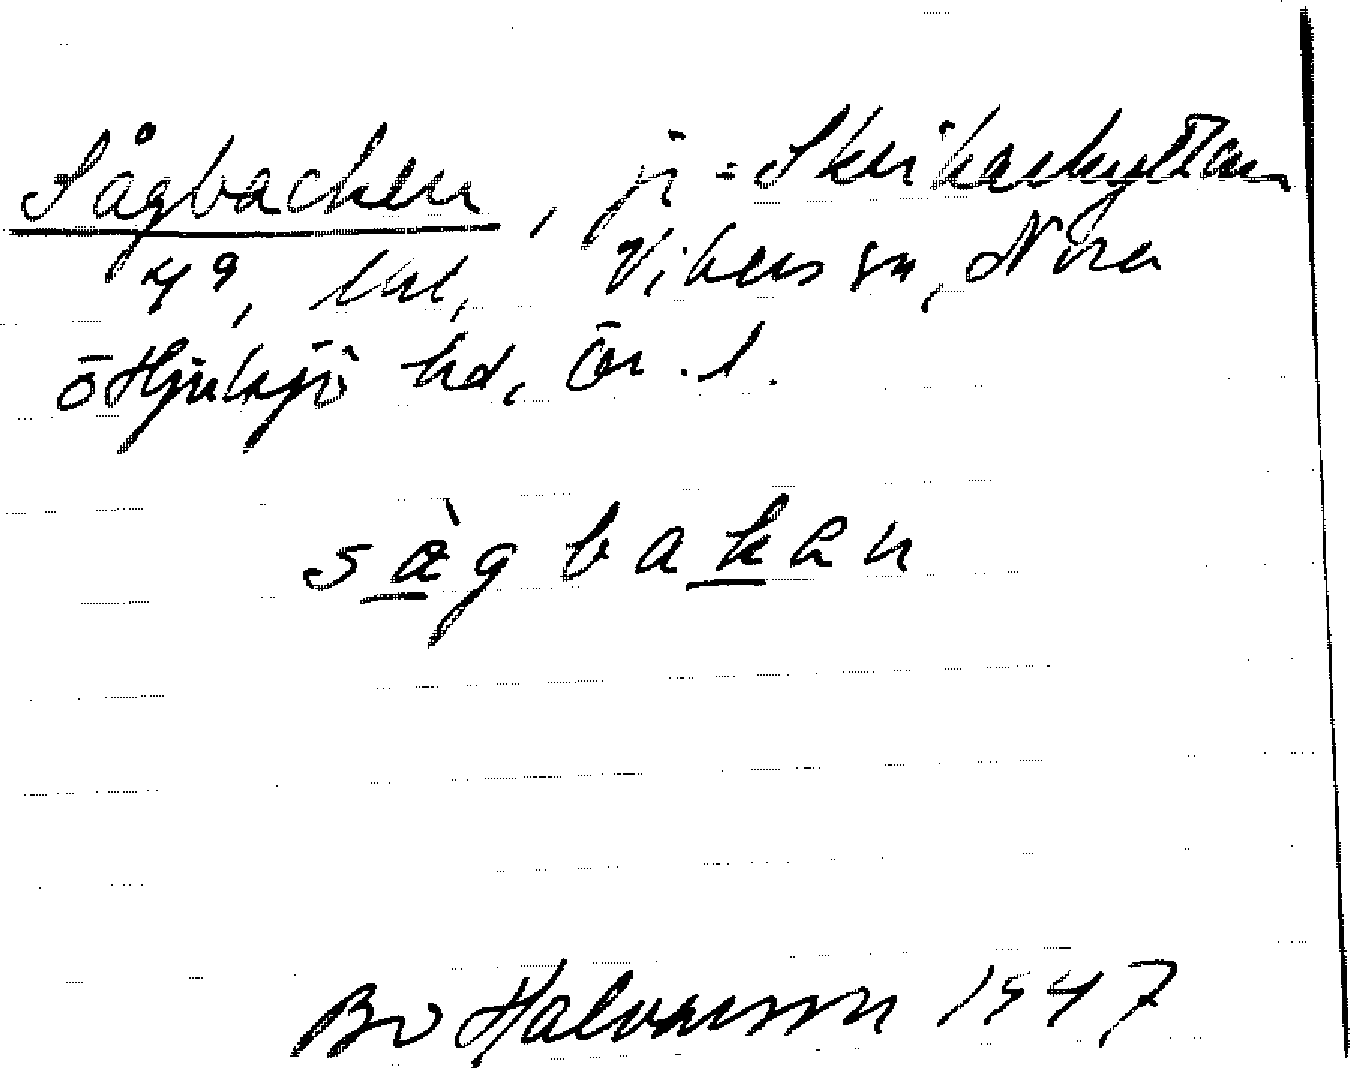 Sågbacken, ji = Skrikarhyttan
49, Vikers sn, Nora
ö Hjulsjö hd, Ör. l.
sàgbakan
Bo Halvarsson 1947